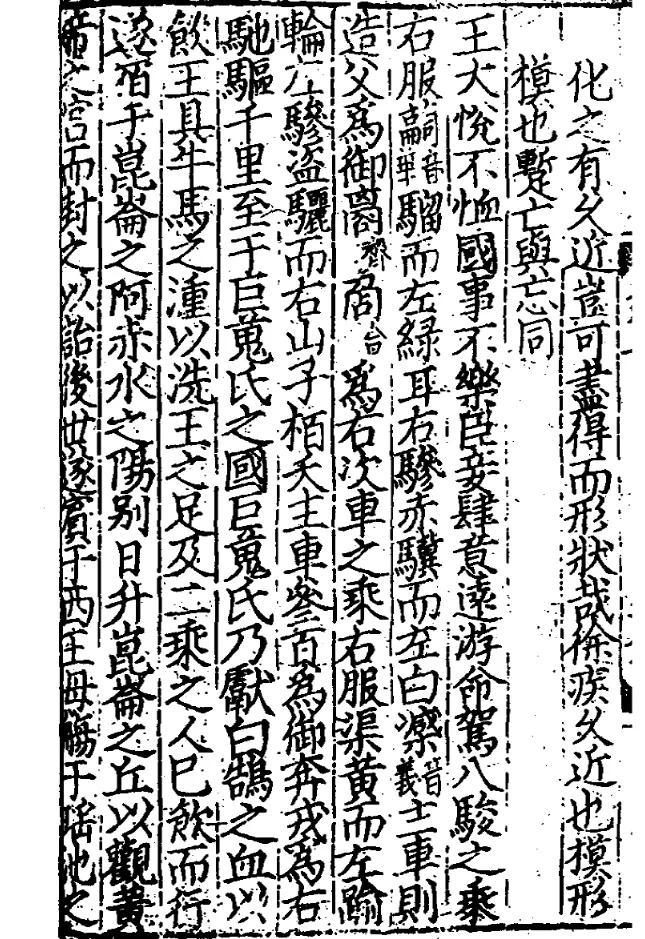 化之有久近豈可盡得而形狀哉徐疾久近也模形
模也蹔亡與忘同
王大悅不恤國事不樂臣妾肆意遠游命駕八駿之乘
右服騮而左綠耳右驂赤驥而左白音義主車則
造父為御齊台為右次車之乘右服渠黃而左踰
輪左驂盜驪而右山子栢夭主車叅百為御奔戎為右
馳驅千里至于巨蒐氏之國巨蒐氏乃獻白鵠之血以
飲王具牛馬之湩以洗王之足及二乘之人已飲而行
遂宿于崑崙之阿赤水之陽別日升崑崙之丘以觀黃
帝之宮而封之以詒後世遂賓于西王母觴于瑤池之